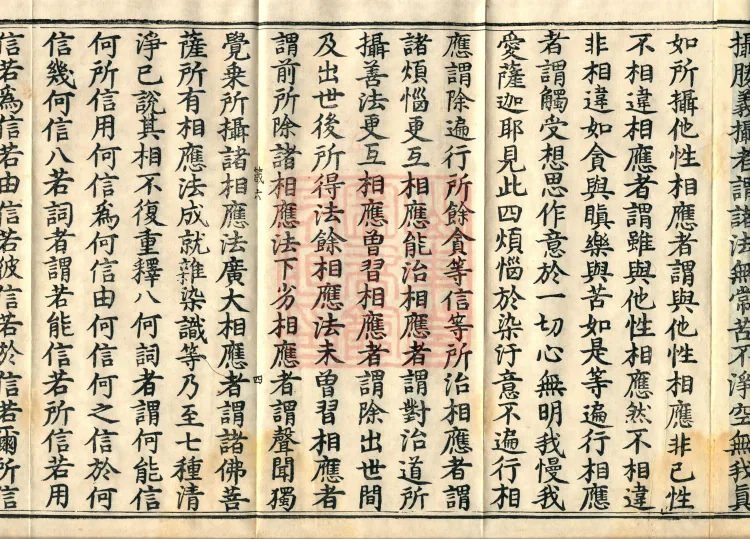 攝勝義攝者謂諸法無常苦不淨空無我真
如所攝他性相應者謂與他性相應非己性
不相違相應者謂雖與他性相應然不相違
非相違如貪與瞋樂與苦如是等遍行相應
者謂觸受想思作意於一切心無明我慢我
愛薩迦耶見此四煩惱於染汙意不遍行相
應謂除遍行所餘貪等信等所治相應者謂
諸煩惱更互相應能治相應者謂對治道所
攝善法更互相應曾習相應者謂除出世間
及出世後所得法餘相應法未曾習相應者
謂前所除諸相應法下劣相應者謂聲聞獨
覺乗所攝諸相應法廣大相應者謂諸佛菩
薩所有相應法成就雜染識等乃至七種清
淨已說其相不復重釋八何詞者謂何能信
何所信用何信爲何信由何信何之信於何
信幾何信八若詞者謂若能信若所信若用
信若爲信若由信若彼信若於信若爾所信
藏六
四